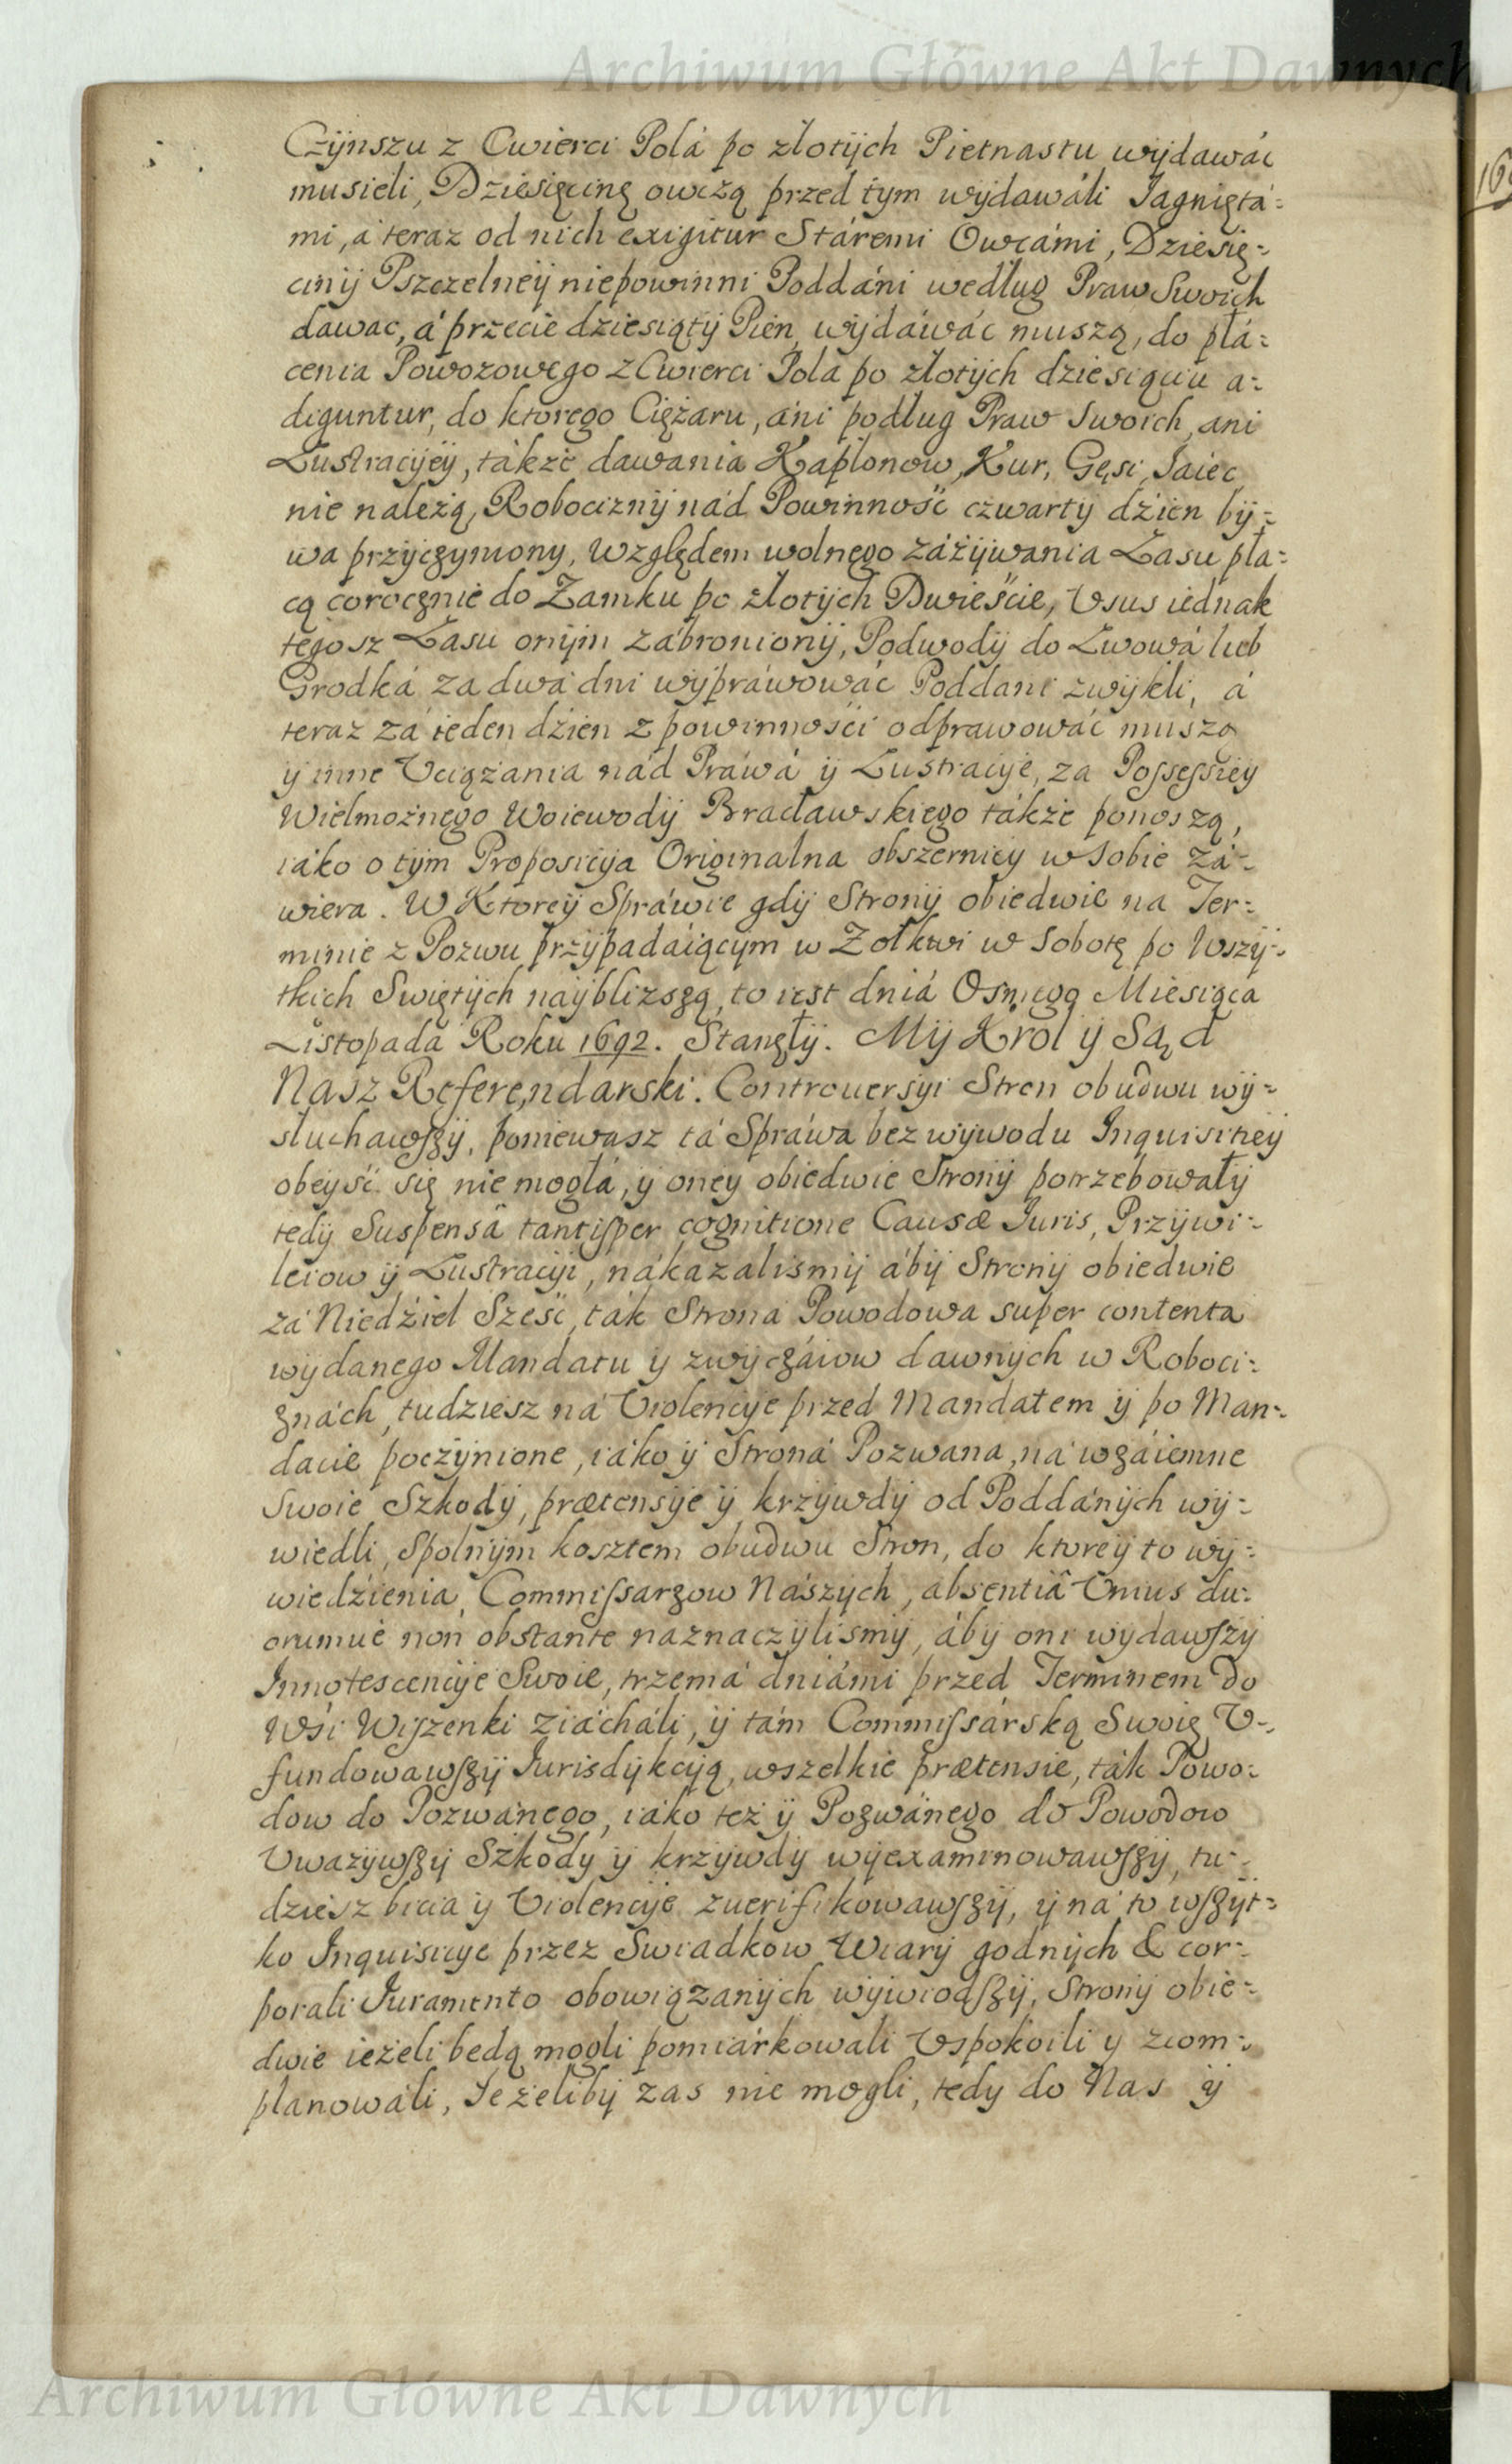 Archiwum Główne Akt Dawnych
Czÿnszu z Cwierci Polá po złotÿch Pietnastu wÿdawáć
musieli, Dziesięcinę owczą przed tym wÿdawáli Jagniętá=
mi, á teraz od nich exigitur Stáremi Owcámi, Dziesię=
cinÿ Pszczelneÿ niepowinni Poddáni według Praw Swoich
dawac, á przecie dziesiątÿ Pien wÿdáwáć muszą, do płá=
cenia Powozowego z Cwierci Pola po złotÿch dziesiąciu a=
diguntur, do ktorego Ciężaru, áni podług Praw Swoich, ani
Lustracÿeÿ, tákże dawania Kapłonow, Kur, Gęsi, Jaiec
nie należą, Robociznÿ nád Powinność czwarty dźień bÿ=
wa przÿczyniony, Względem wolnego záżÿwania Lasu płá=
cą corocznie do Zamku po złotÿch Dwieście, Vsus iednak
tegosz Lasu onÿm zábronionÿ, Podwodÿ do Lwowá lub
Grodká za dwá dni wÿpráwowáć Poddani zwÿkli, á
teraz zá ieden dźień z powinności odprawowáć muszą
ÿ inne Vciązania nád Práwá ÿ Lustracÿe, za Possessiey
Wielmożnego Woiewodÿ Bracławskiego tákże ponoszą,
iáko o tÿm Proposicÿa Originalna obszernieÿ w sobie zá=
wiera. W Ktoreÿ Spráwie gdÿ Stronÿ obiedwie na Ter=
minie z Pozwu przÿpadáiącÿm w Zołkwi w Sobotę po Wszÿ=
tkich Swiętÿch naÿblizszą, to iest dniá Osmego Miesiąca
Listopada Roku 1692. Stanęłÿ. Mÿ Król ÿ Sąd
Nasz Referendarski. Controuersÿi Stron obudwu wÿ=
słuchawszÿ, poniewasz tá Spráwa bez wÿwodu Inquisitieÿ
obeÿść się nie mogłá, ÿ oneÿ obiedwie Stronÿ potrzebowałÿ
tedÿ Suspensâ tantisper cognitione Causæ Iuris, Przÿwi=
leiow ÿ Lustracÿi, nákazalismÿ ábÿ Stronÿ obiedwie
zá Niedźiel Sześć, ták Strona Powodowa super contenta
wÿdanego Mandatu ÿ zwÿczáiow dawnÿch w Roboci=
znách, tudziesz ná Violencÿe przed Mandatem ÿ po Man=
dacie poczÿnione, iáko ÿ Stroná Pozwana, ná wzáiemne
Swoie Szkodÿ, prætensÿe ÿ krzÿwdÿ od Poddánÿch wÿ=
wiedli, Spolnÿm kosztem obudwu Stron, do ktoreÿ to wÿ=
wiedźienia, Commissarzow Nászÿch, absentiâ Unius du=
orumue non obstante naznaczÿlismÿ, ábÿ oni wÿdawszÿ
Innotescencÿe Swoie, trzemá dniámi przed Terminem do
Wsi Wiszenki ziácháli, ÿ tám Commissárską Swoię V=
fundowawszÿ Iurisdÿkcÿą, wszelkie prætensie, ták Powo=
dow do Pozwánego, iáko też ÿ Pozwánego do Powodow
Vwazÿwszÿ Szkodÿ ÿ krzÿwdÿ wÿexaminowawszÿ, tu=
dziesz bicia ÿ Violencÿe zuerifikowawszÿ, ÿ ná to wszÿt=
ko Inquisicÿe przez Swiadkow Wiarÿ godnÿch & cor=
porali Iuramento obowiązanÿch wÿwiodszÿ, Stronÿ obie=
dwie ieżeli będą mogli pomiárkowali Vspokoili ÿ zkom=
planowáli, Jeżelibÿ zas nie mogli, tedÿ do Nas ÿ
Archiwum Główne Akt Dawnych